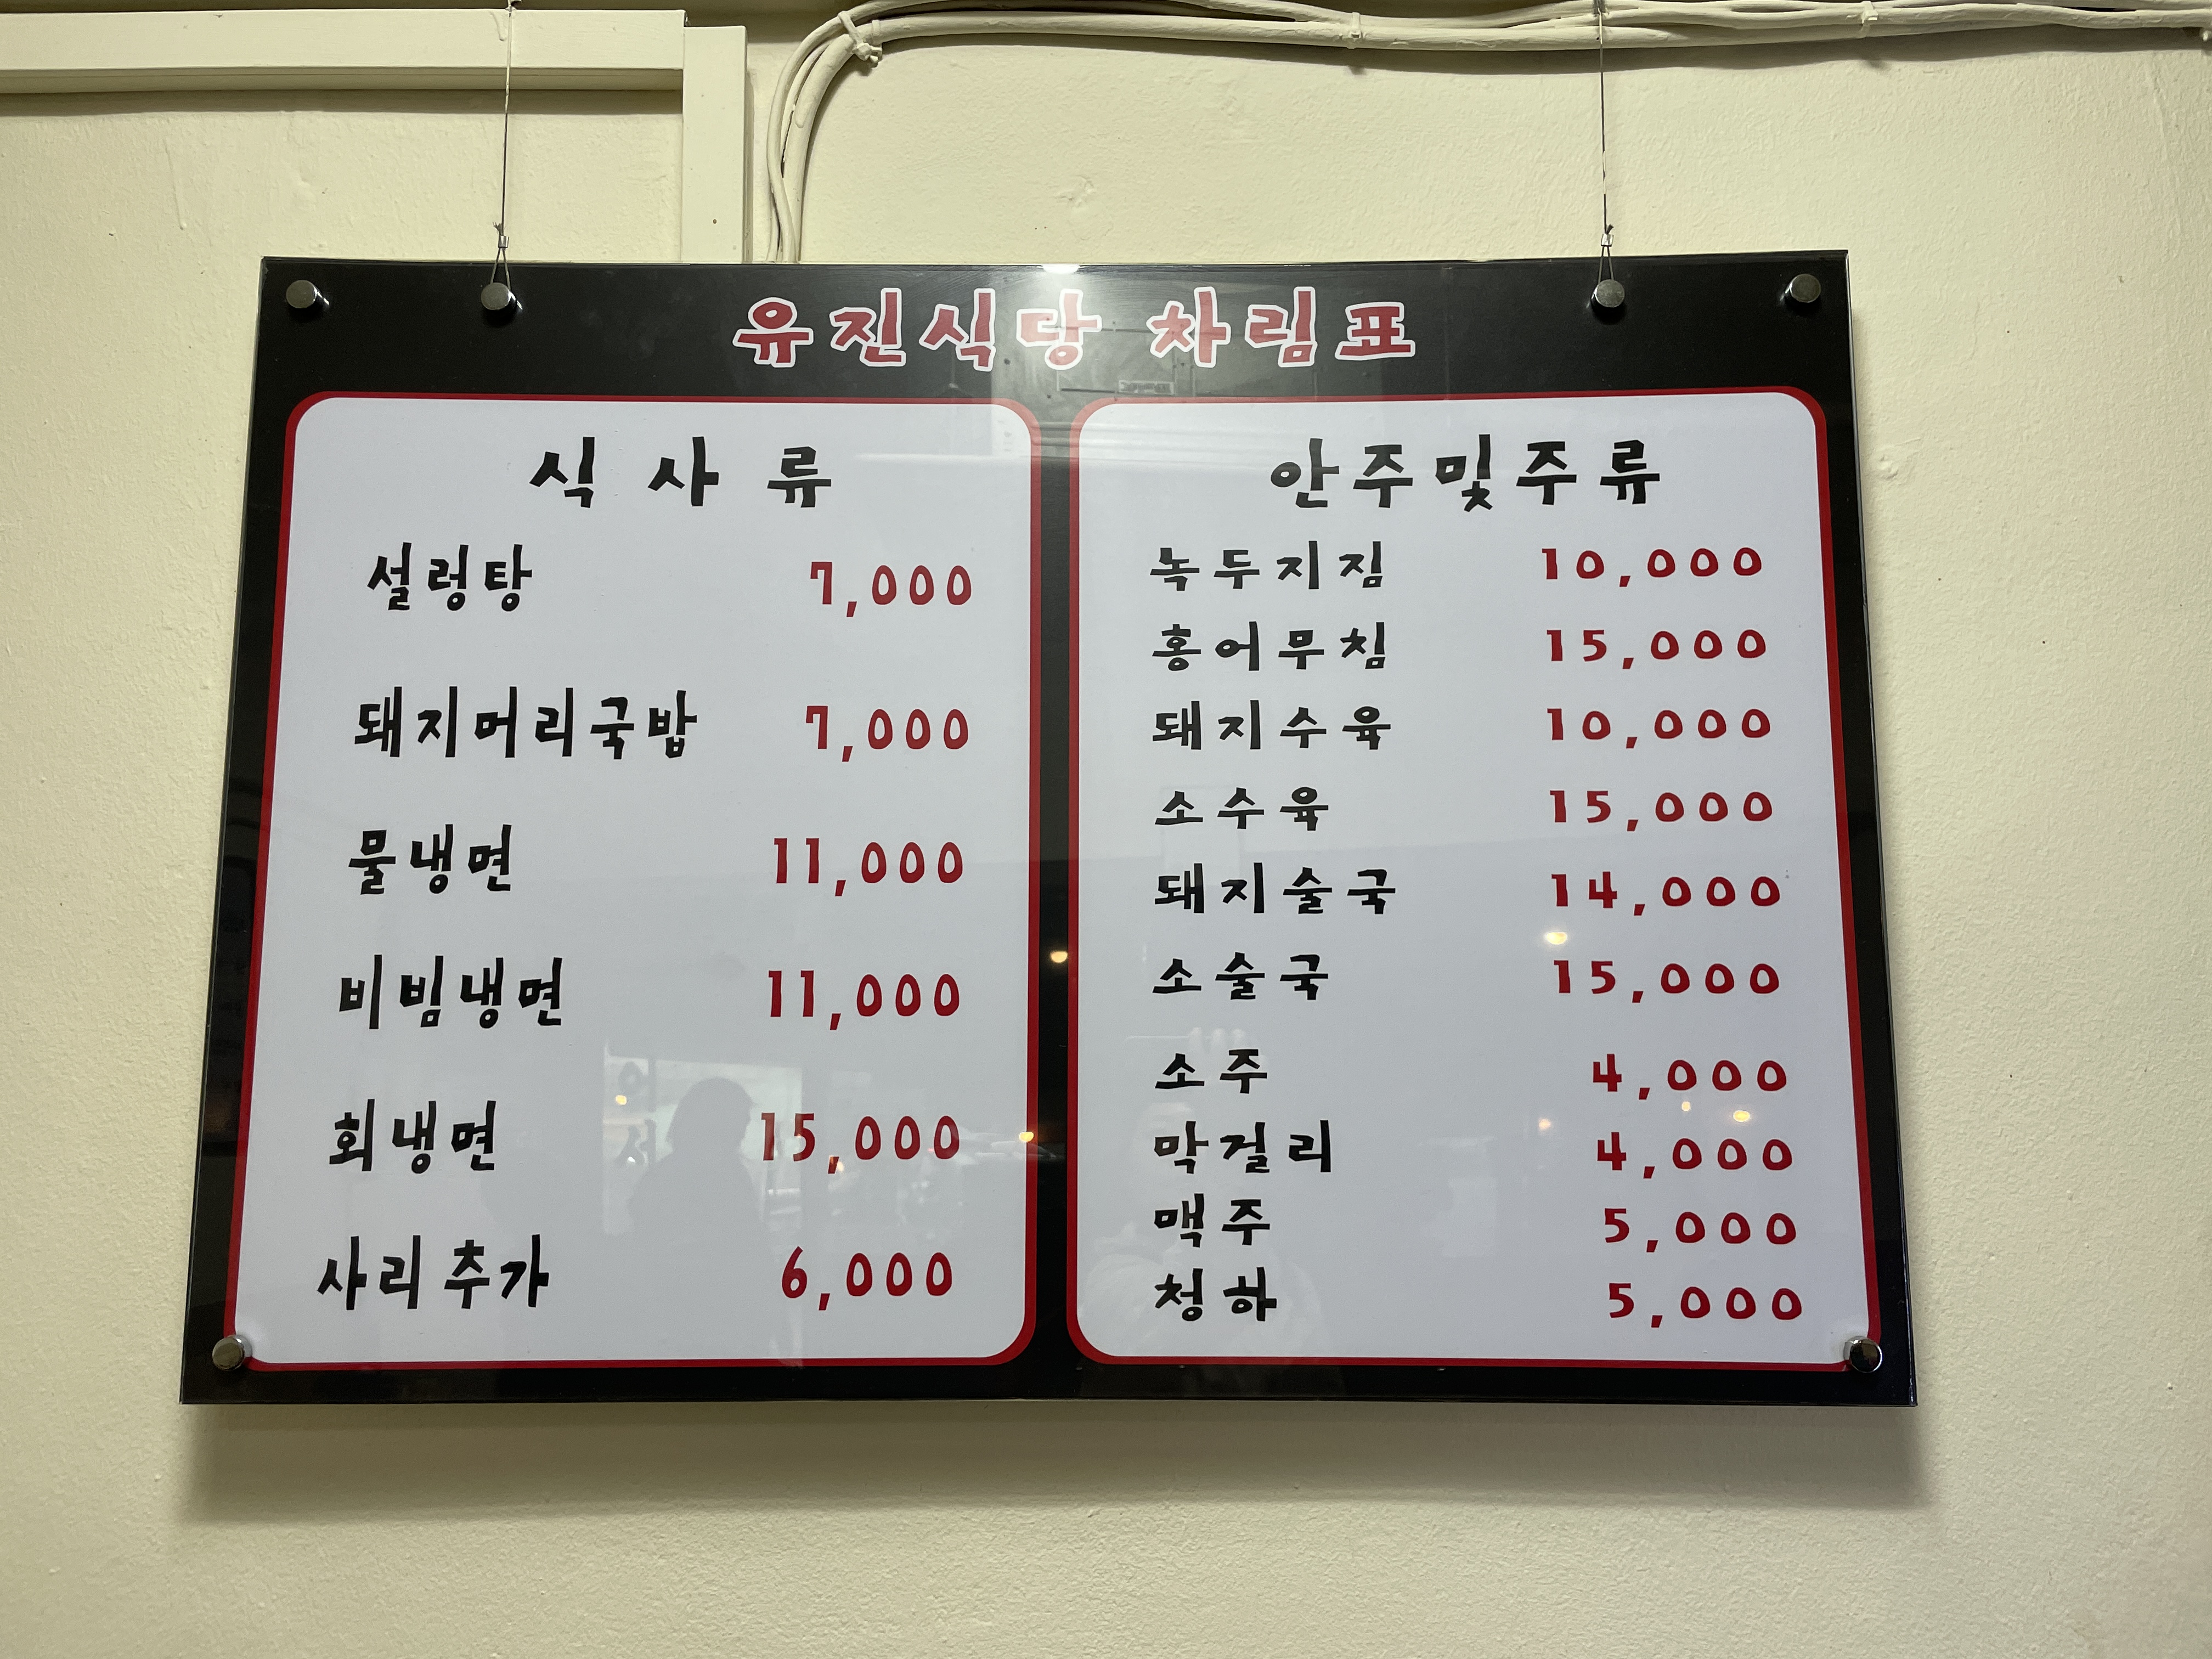 유진식당 차림표
식사류
설렁탕 7,000
돼지머리국밥 7,000
물냉면 11,000
비빔냉면 11,000
회냉면 15,000
사리추가 6,000
안주및주류
녹두지짐 10,000
홍어무침 15,000
돼지수육 10,000
소수육 15,000
돼지술국 14,000
소술국 15,000
소주 4,000
막걸리 4,000
맥주 5,000
청하 5,000